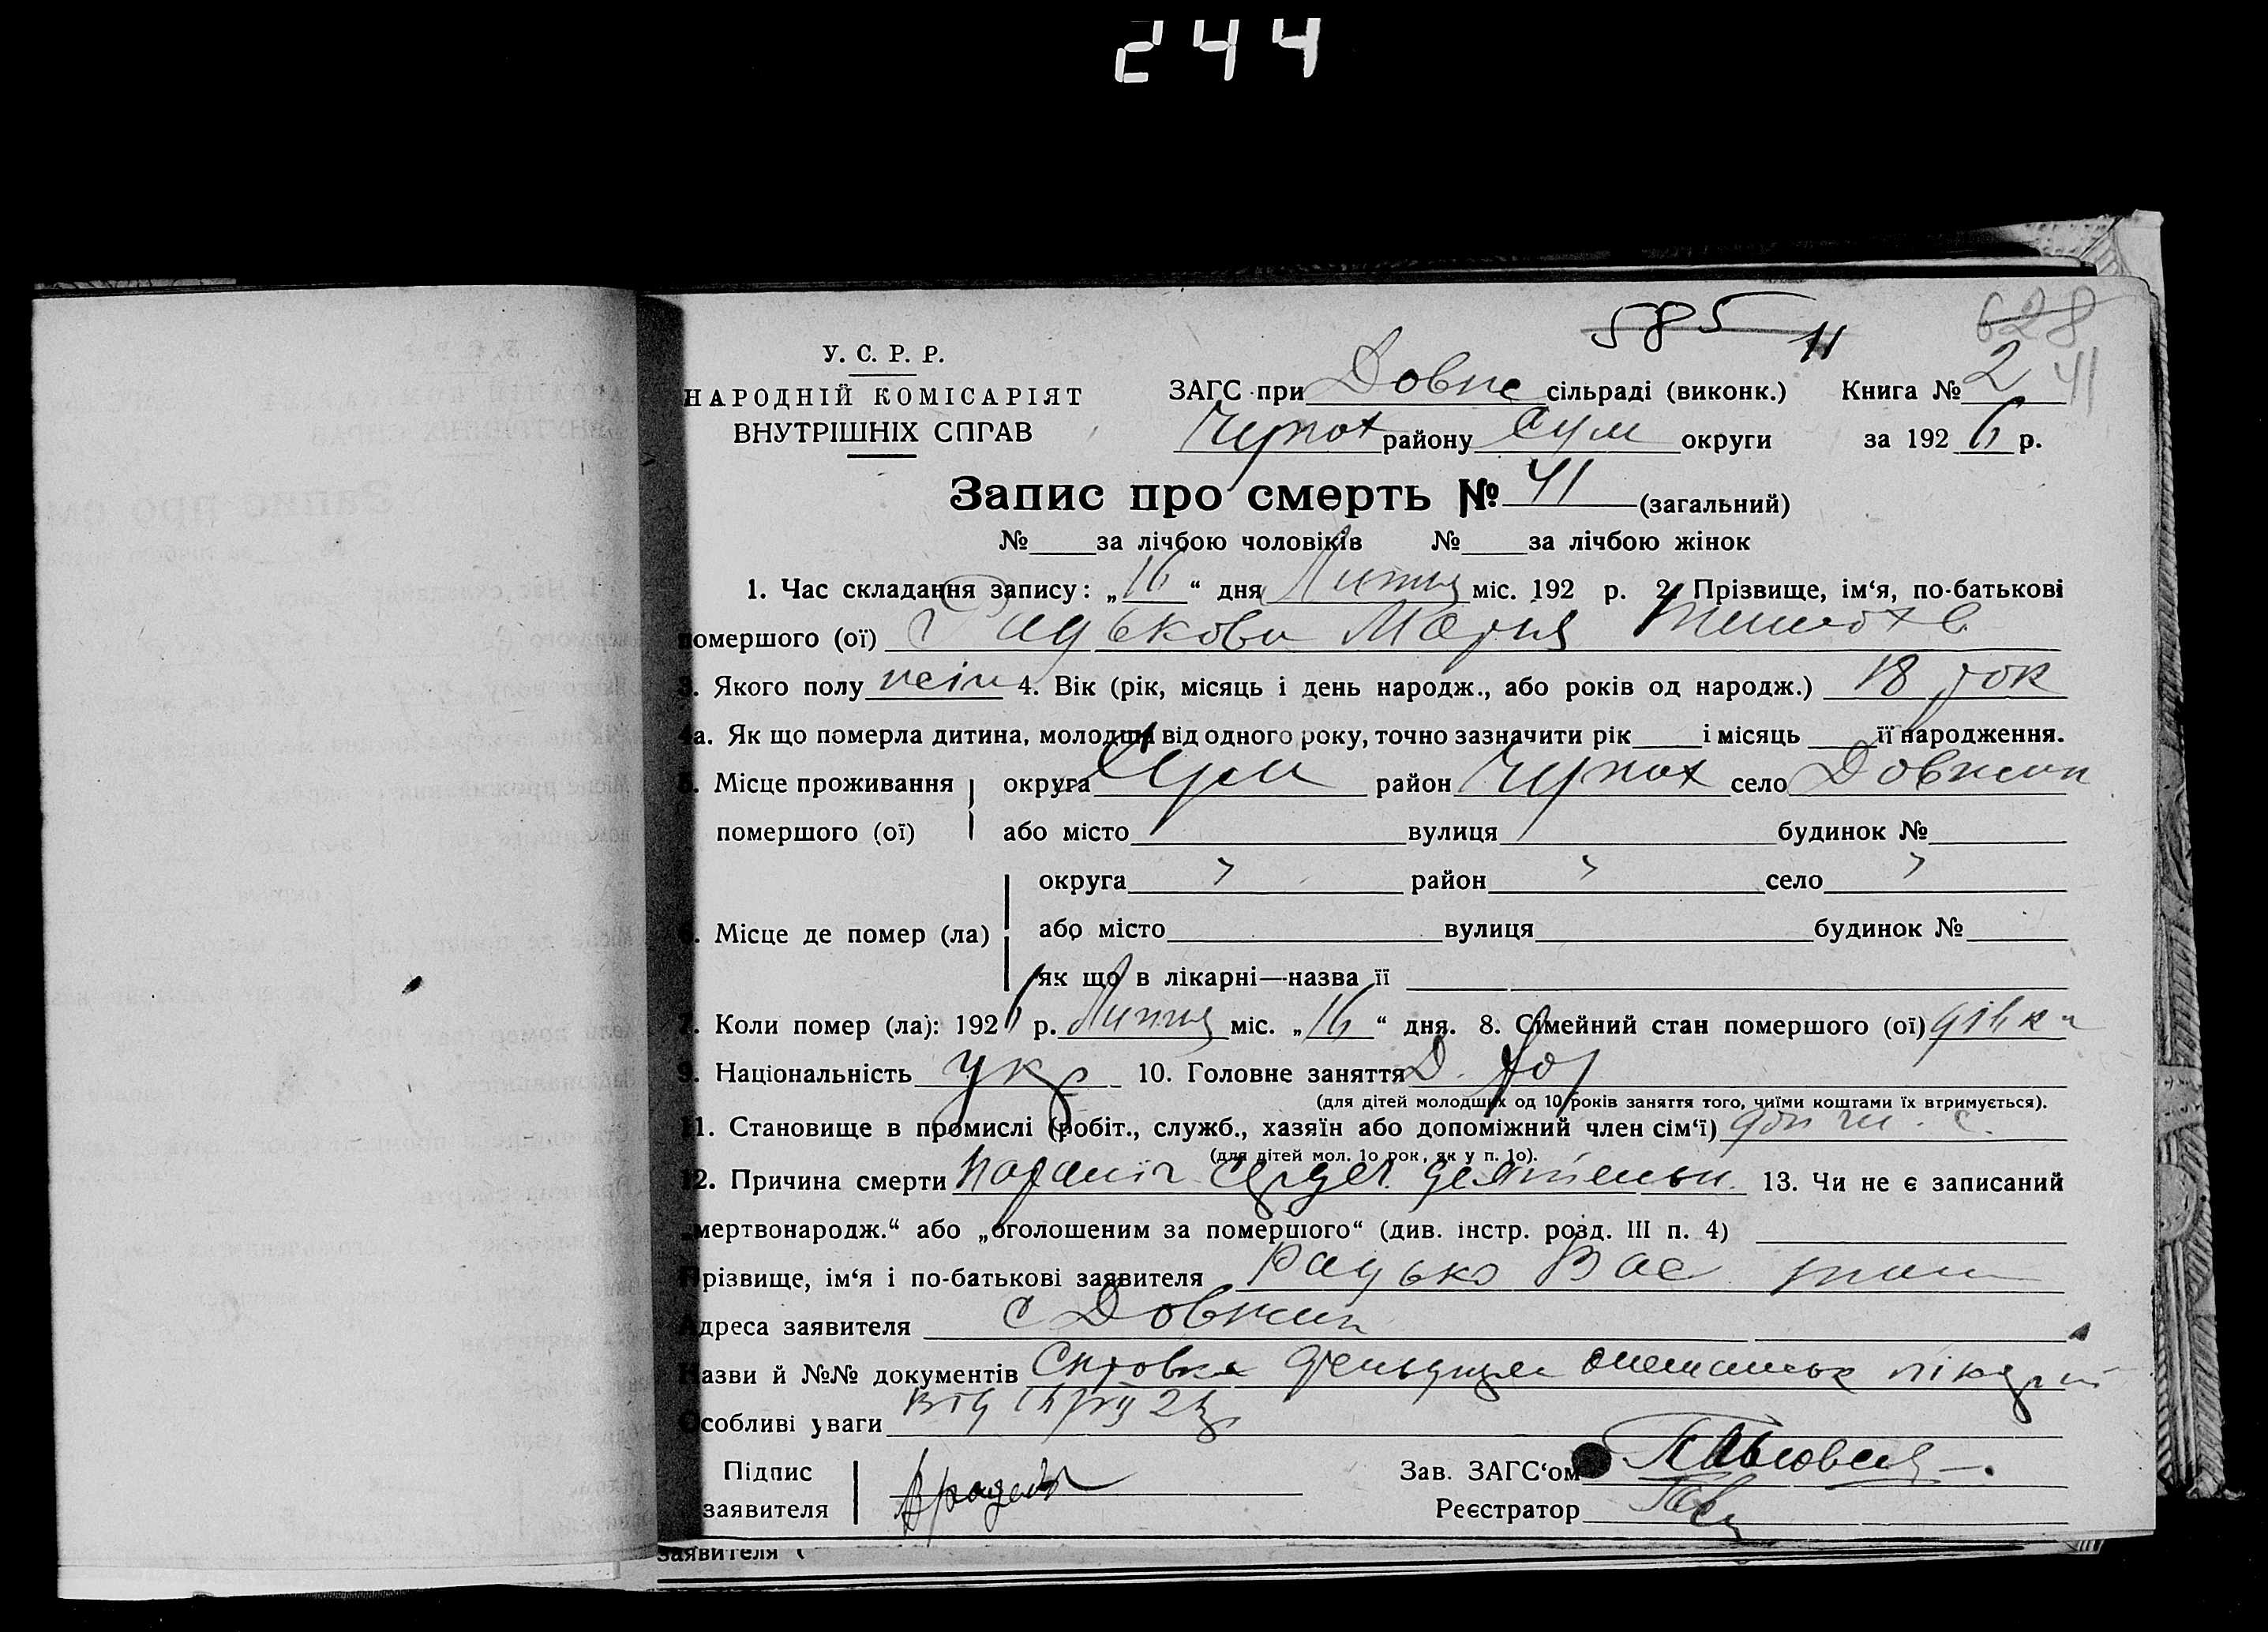 244
585 11 628
У. С. Р. Р.
НАРОДНІЙ КОМІСАРІЯТ
ВНУТРІШНІХ СПРАВ
ЗАГС при Довж сільраді (виконк.) Книга № 2 41
район району Сум округи за 1926 р.
Запис про смерть № 41 (загальний)
№ за лічбою чоловіків № за лічбою жінок
1. Час складання запису: „16“ дня Липня міс. 192 р. 2. Прізвище, ім‘я, по-батькові
помершого (ої) Радькова Мария Тимоф
3. Якого полу жін 4. Вік (рік, місяць і день народж., або років од народж.) 18 рок
4а. Як що померла дитина, молодша від одного року, точно зазначити рік і місяць її народження.
5. Місце проживання округа Сум район село Довжик
помершого (ої) або місто вулиця будинок №
округа " район " село "
6. Місце де помер (ла) або місто вулиця будинок №
як що в лікарні—назва її
7. Коли помер (ла): 1926 р. Липня міс. „16“ дня. 8. Сімейний стан помершого (ої) дівка
9. Національність укр 10. Головне заняття
(для дітей молодших од 10 років заняття того, чиїми коштами їх втримується).
11. Становище в промислі (робіт., служб., хазяїн або допоміжний член сім‘ї) доп чл. с.
(для дітей мол. 10 рок, як у п. 10).
12. Причина смерти параліч сердеч деятельн. 13. Чи не є записаний
„мертвонародж.“ або „оголошеним за помершого“ (див. інстр. розд. III п. 4)
Прізвище, ім‘я і по-батькові заявителя Радько Вас
Адреса заявителя с Довжик
Назви й №№ документів Справка лікарн
Особливі уваги
Підпис
заявителя
Зав. ЗАГС‘ом
Реєстратор
заявителя